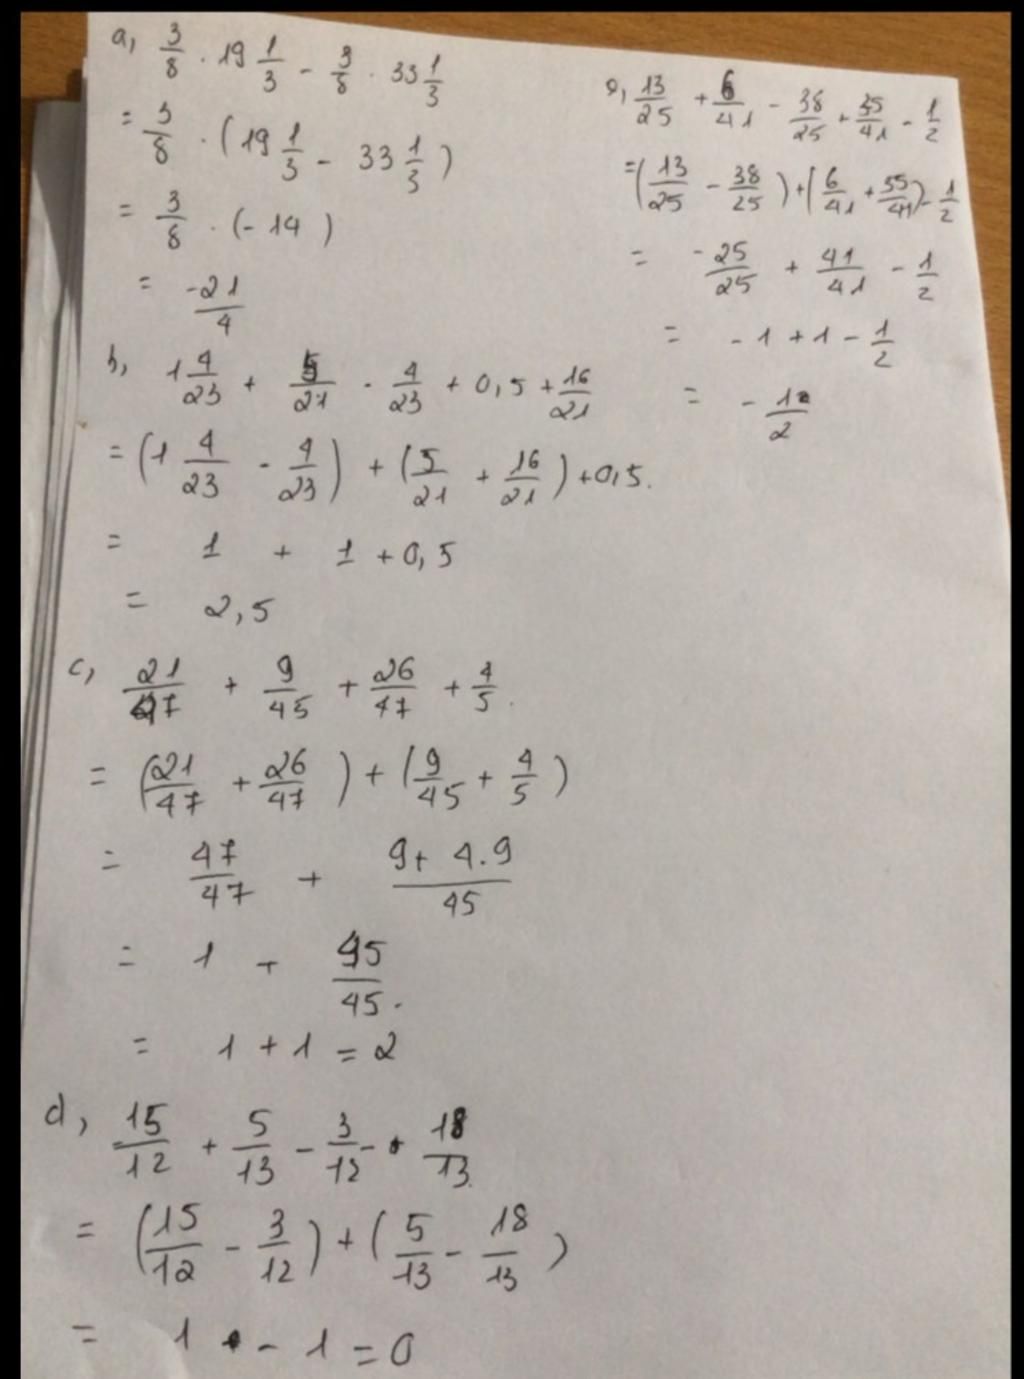 a, 3/8 . 19 1/3 - 3/8 . 33 1/3
= 3/8 . (19 1/3 - 33 1/3)
= 3/8 . (-14)
= -21/4
b, 1 4/23 + 5/21 - 4/23 + 0,5 + 16/21
= (1 4/23 - 4/23) + (5/21 + 16/21) + 0,5.
= 1 + 1 + 0,5
= 2,5
c, 21/47 + 9/45 + 26/47 + 4/5.
= (21/47 + 26/47) + (9/45 + 4/5)
= 47/47 + 9+ 4.9/45
= 1 + 45/45.
= 1 + 1 = 2
d, 15/12 + 5/13 - 3/12 - 18/13.
= (15/12 - 3/12) + (5/13 - 18/13)
= 1 - 1 = 0
e, 13/25 + 6/41 - 38/25 + 35/41 - 1/2
= (13/25 - 38/25) + (6/41 + 35/41) - 1/2
= -25/25 + 41/41 - 1/2
= -1 + 1 - 1/2
= - 1/2